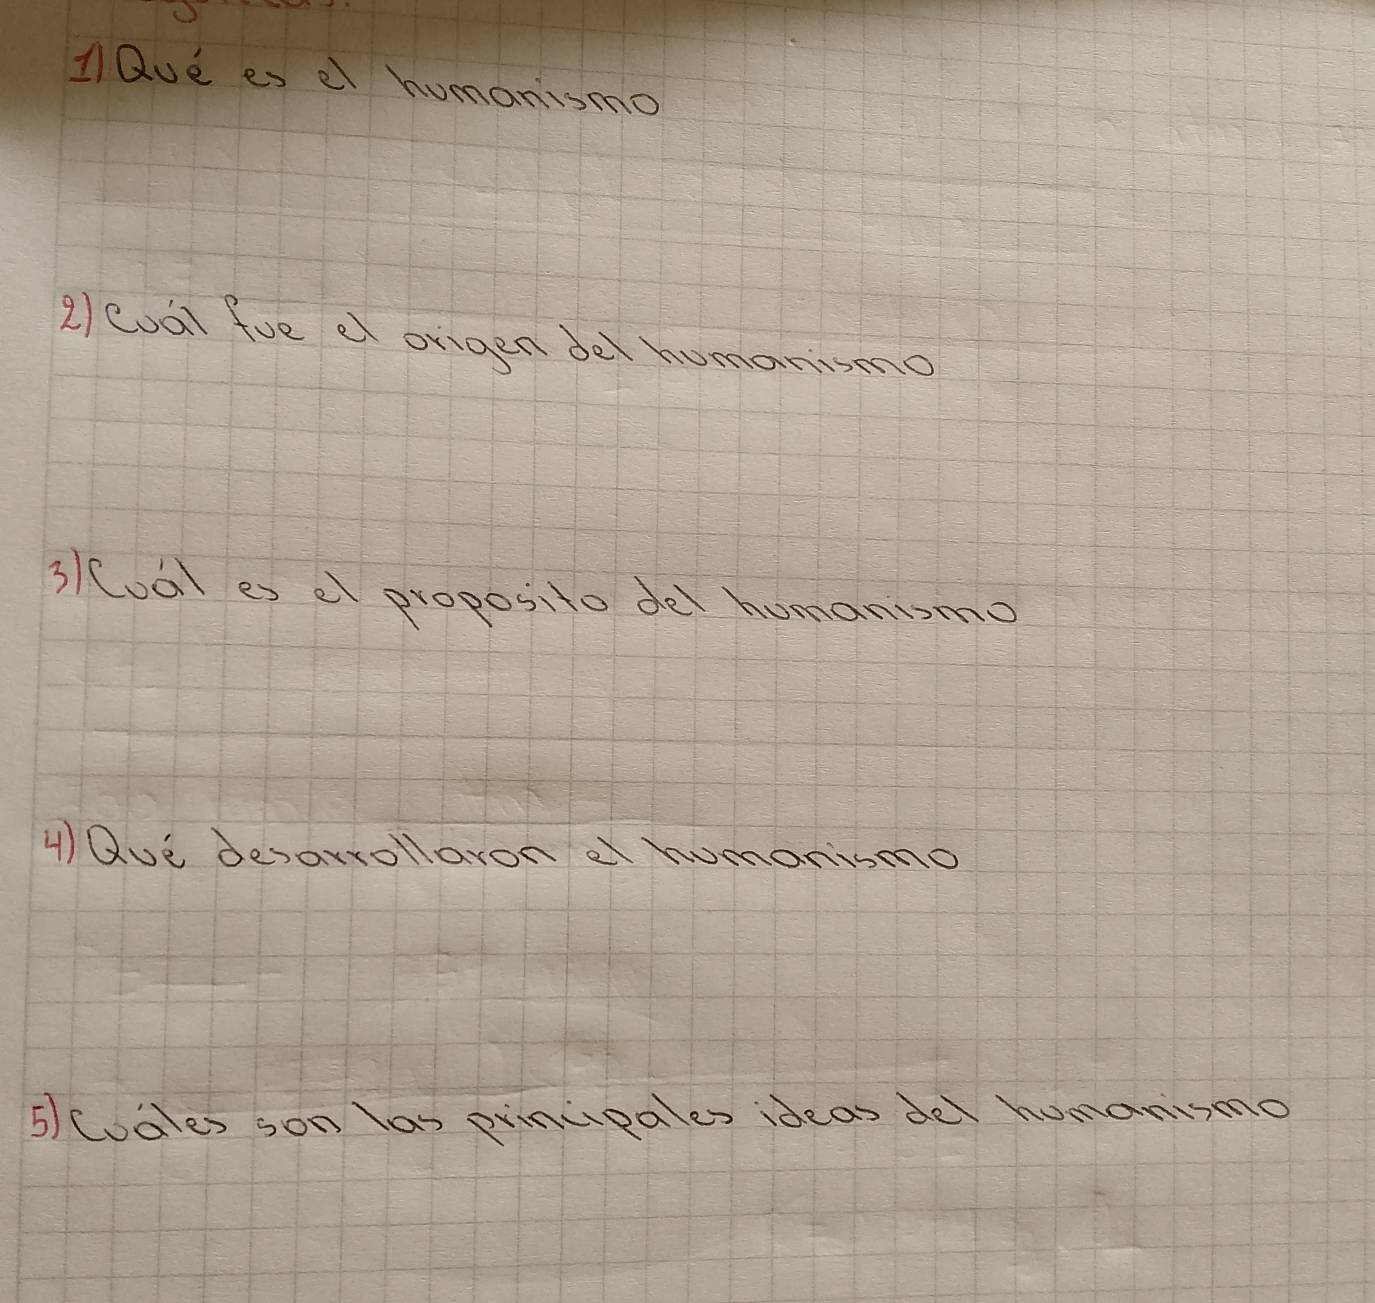 1) Qué es el humanismo
2) Cuál fue el origen del humanismo
3) Cuál es el proposito del humanismo
4) Qué desarrollaron el humanismo
5) Cuáles son las principales ideas del humanismo